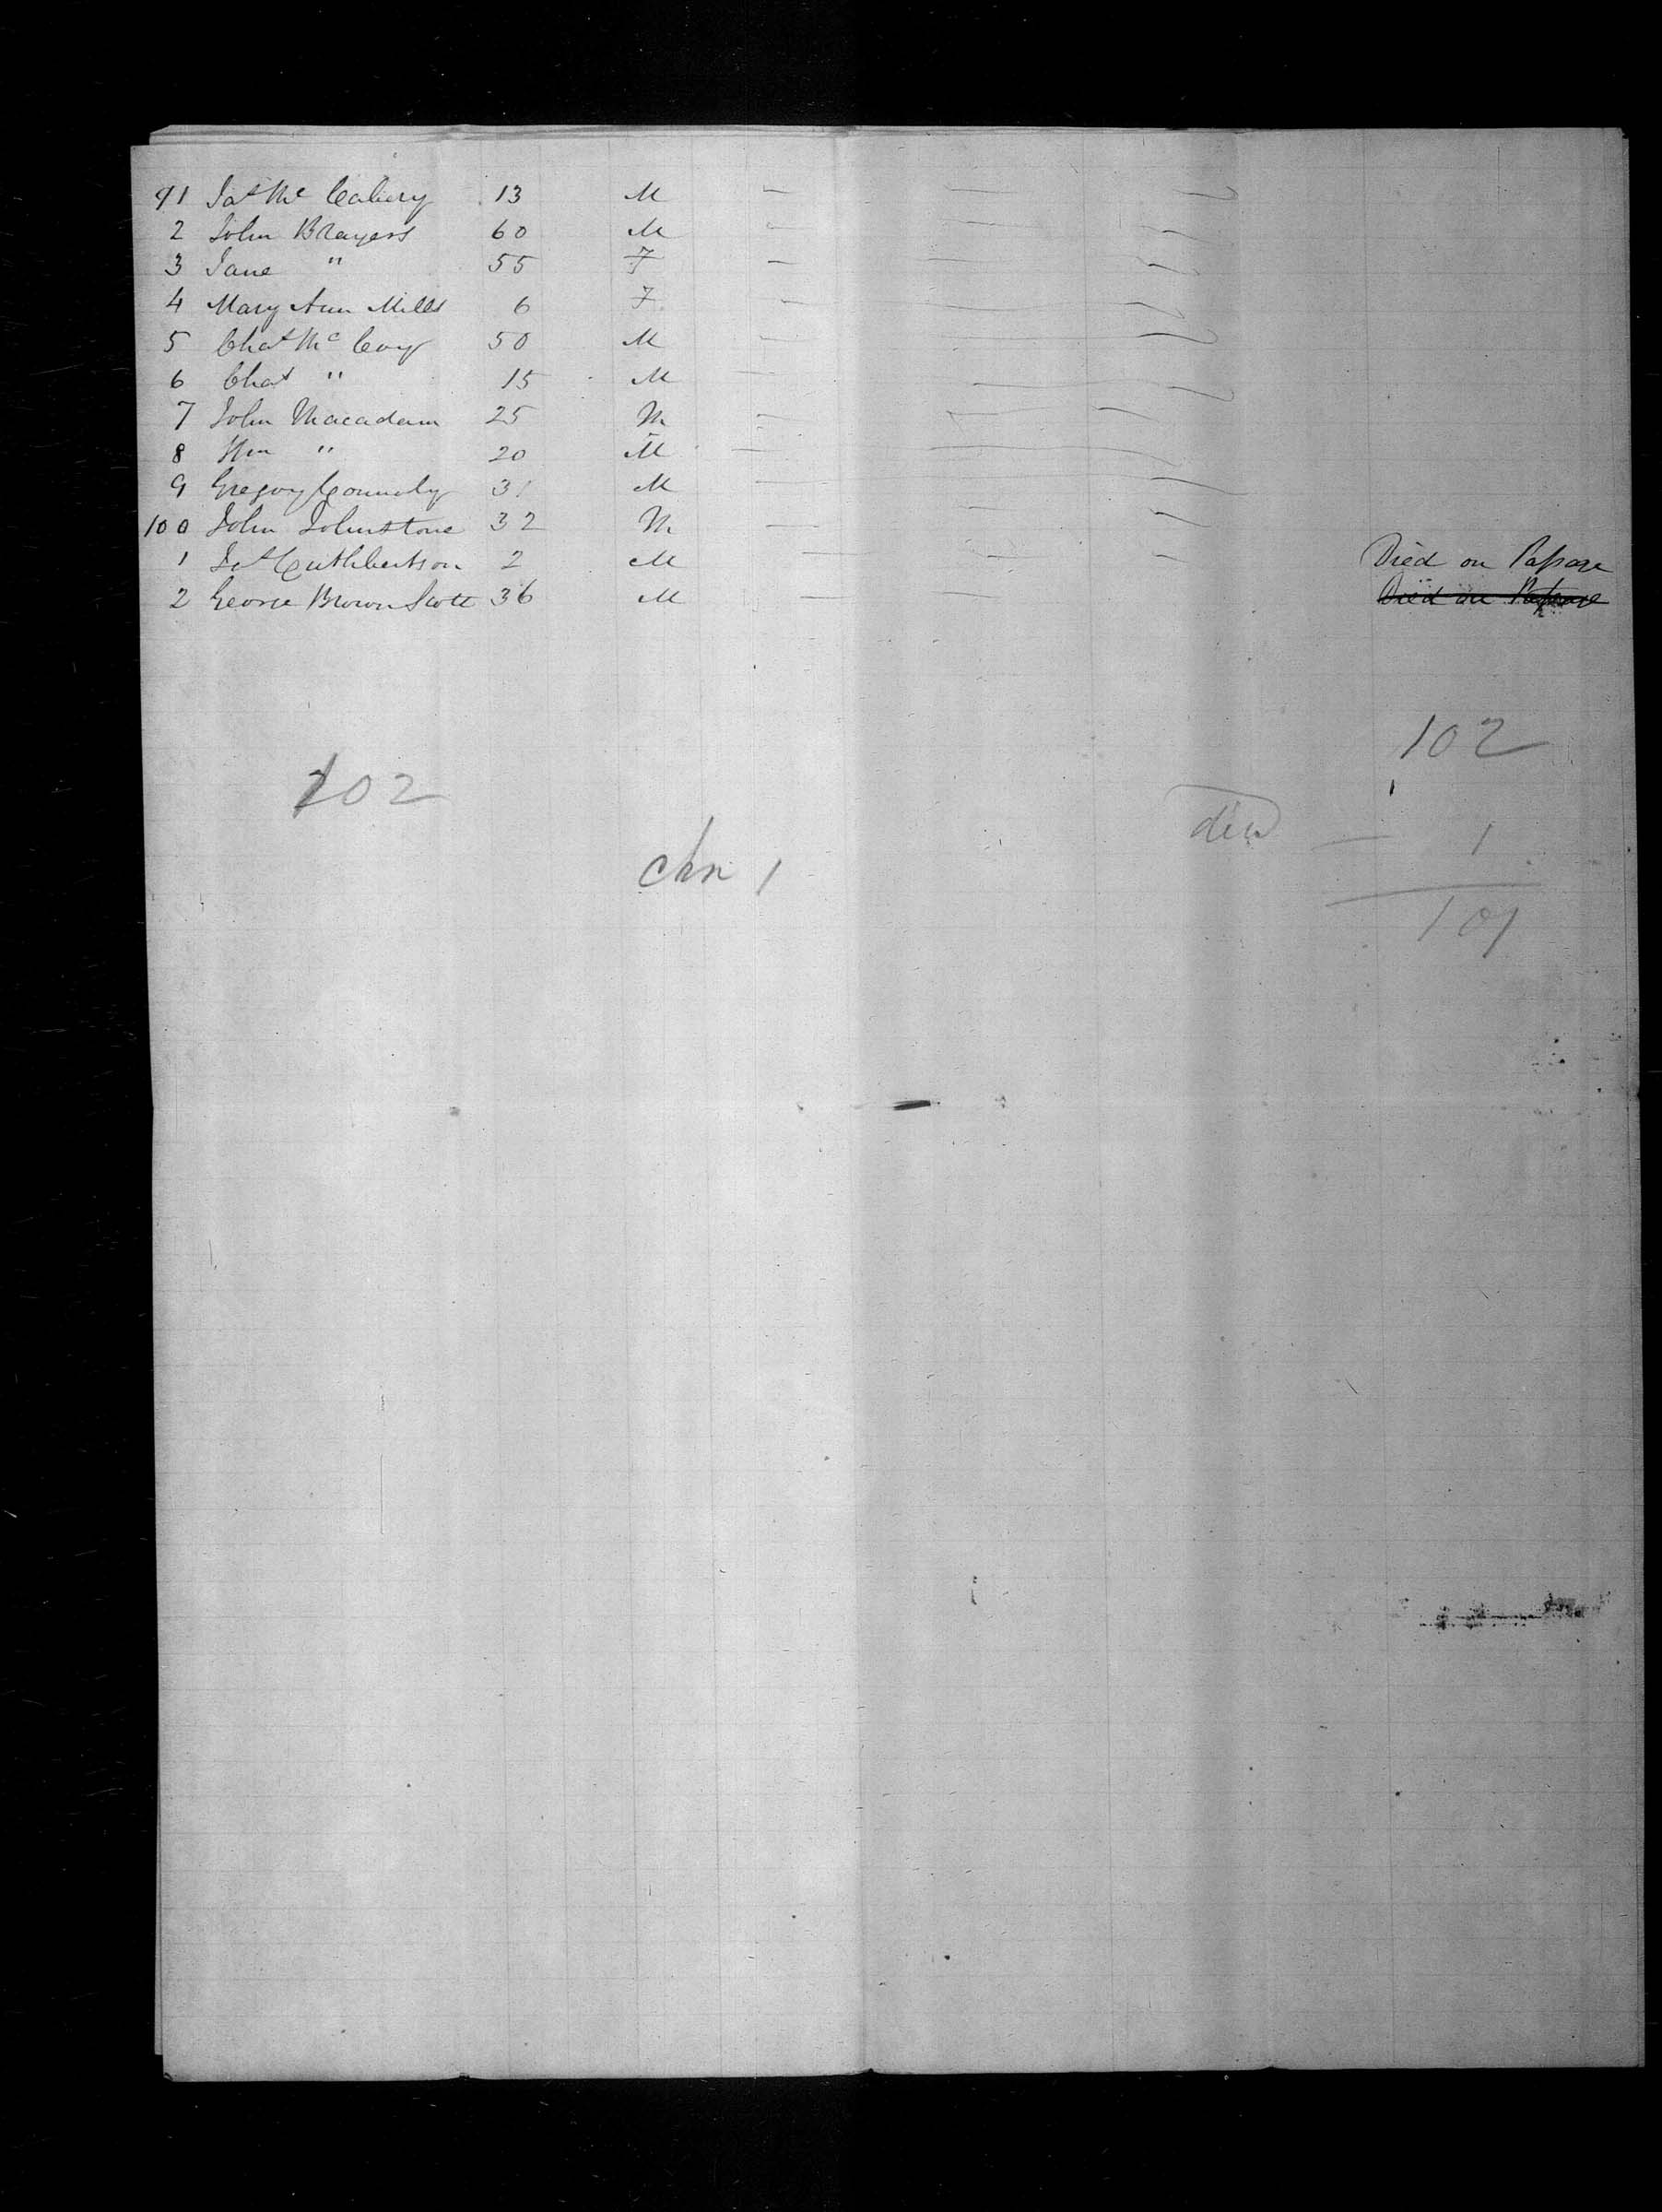 91 Jas Mc Cabery 13 M — — —
2 John Brayers 60 M — — —
3 Jane " 55 F — — —
4 Mary Ann Mills 6 F — — —
5 Chas Mc Coy 50 M — — —
6 Chas " 15 M — — —
7 John Macadam 25 M — — —
8 Wm " 20 M — — —
9 Gregory Connoly 31 M — — —
100 John Johnstone 32 M — — —
1 Js Cuthbertson 2 M — — — Died on Passage
2 George Brown Scott 36 M — — Died on Passage
102
102
died — 1
chn 1
101